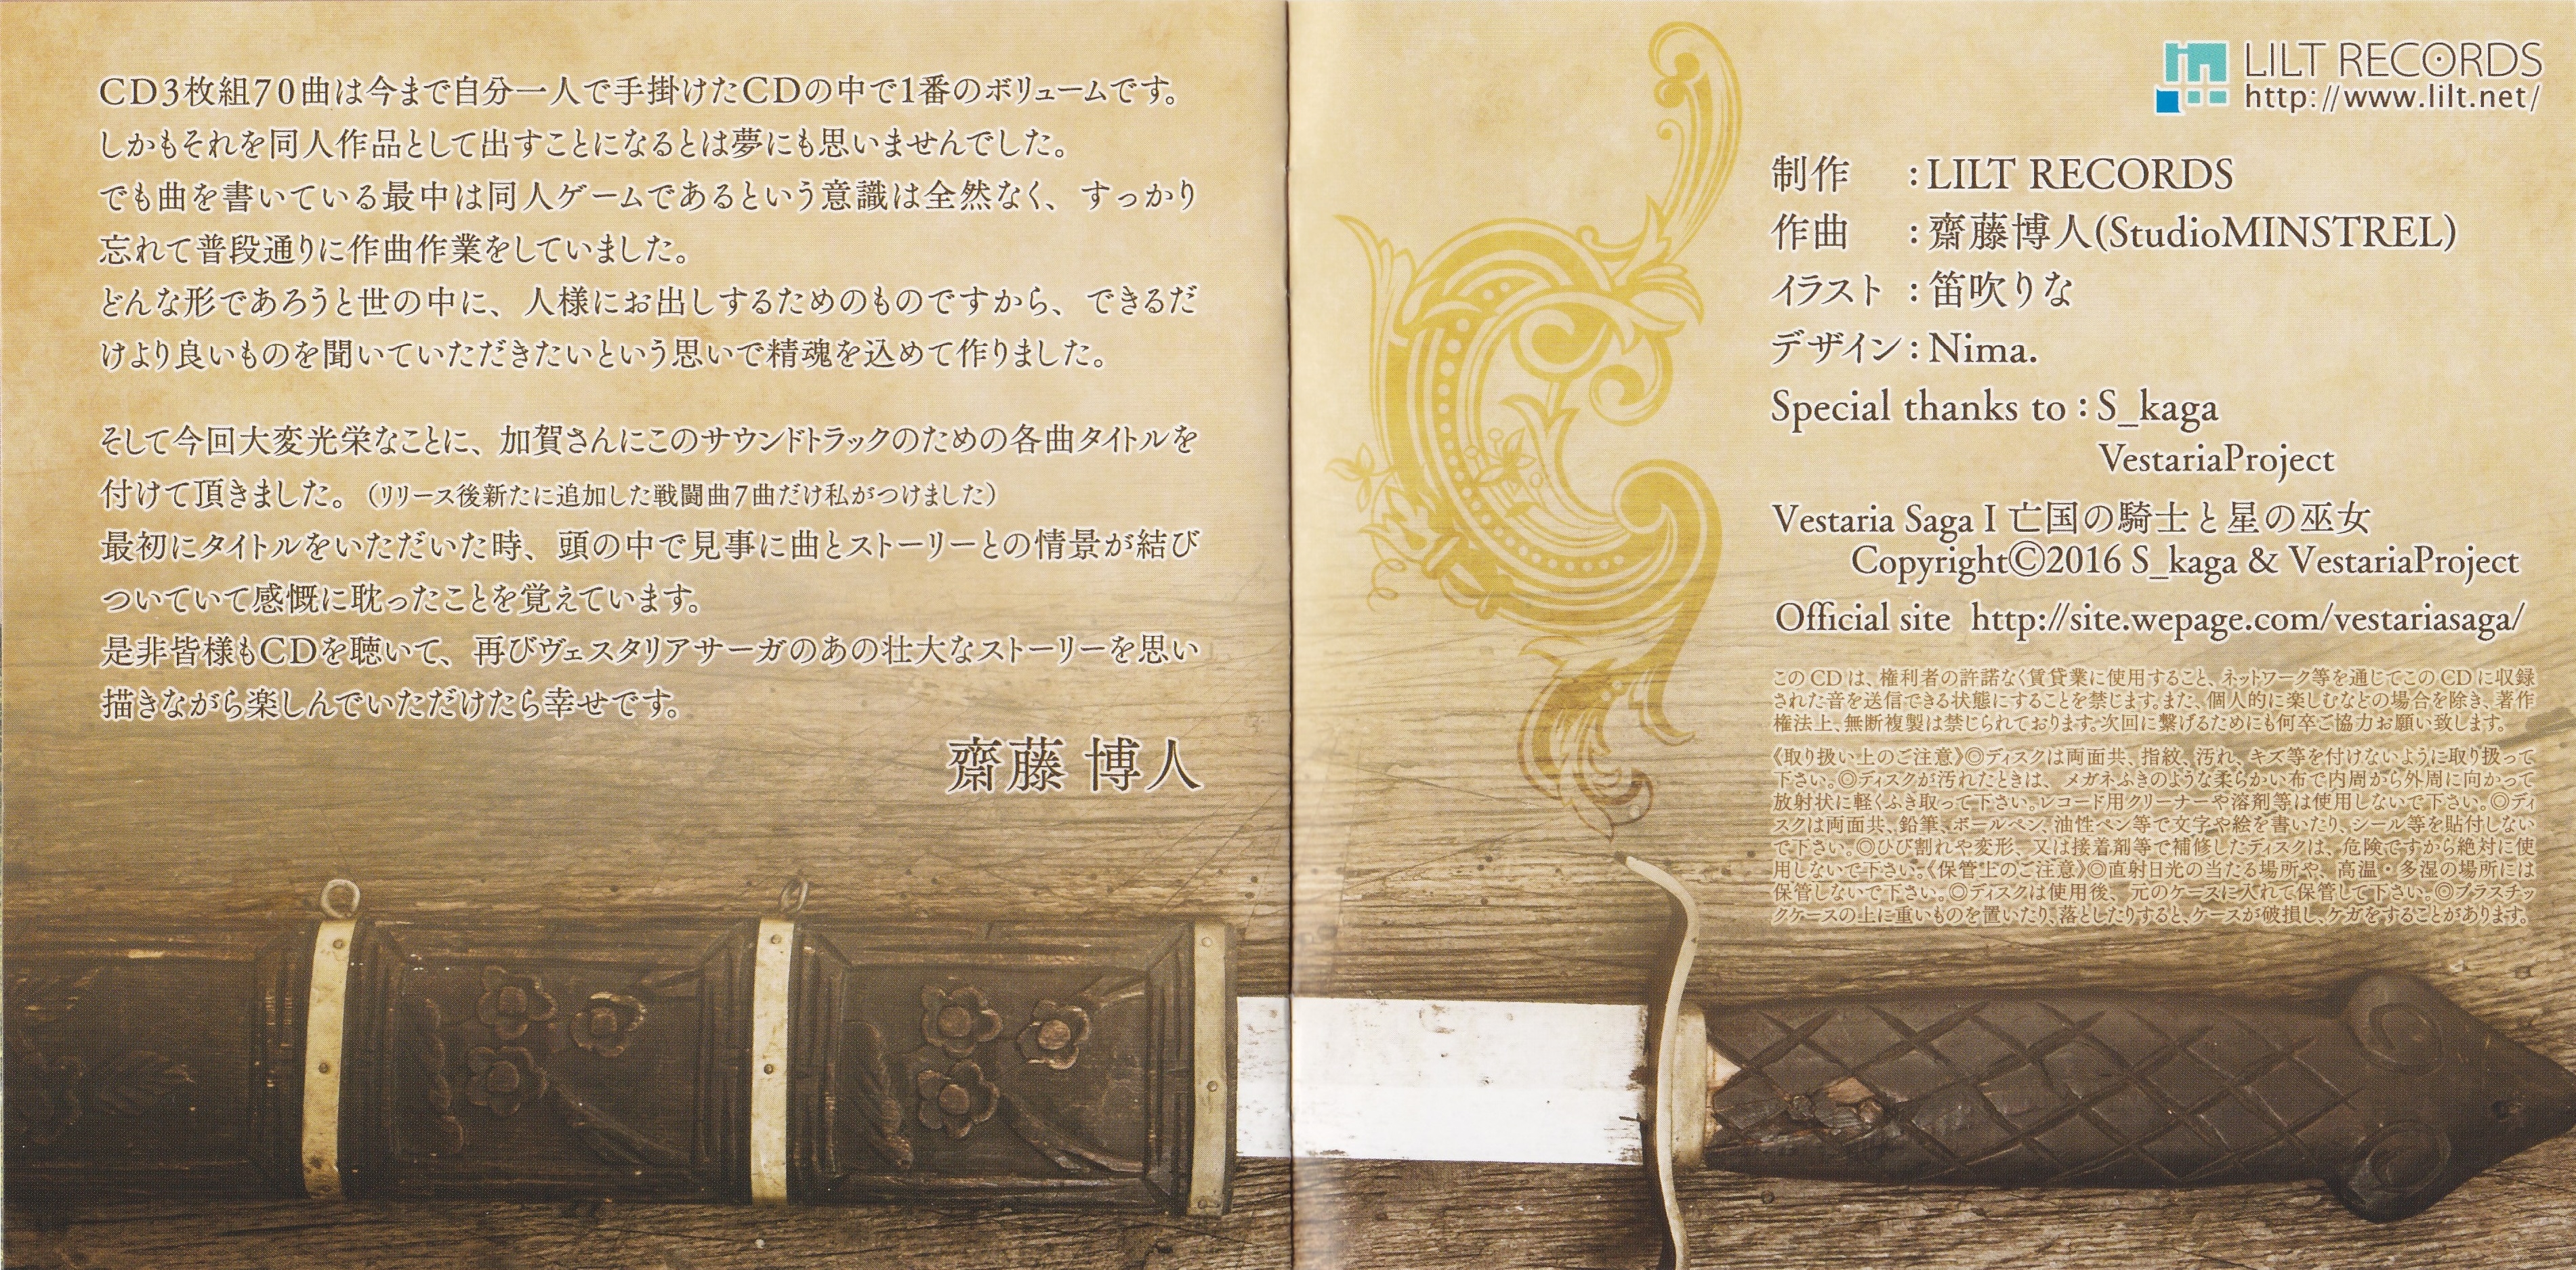 CD3枚組70曲は今まで自分一人で手掛けたCDの中で1番のボリュームです。
しかもそれを同人作品として出すことになるとは夢にも思いませんでした。
でも曲を書いている最中は同人ゲームであるという意識は全然なく、すっかり
忘れて普段通りに作曲作業をしていました。
どんな形であろうと世の中に、人様にお出しするためのものですから、できるだ
けより良いものを聞いていただきたいという思いで精魂を込めて作りました。
そして今回大変光栄なことに、加賀さんにこのサウンドトラックのための各曲タイトルを
付けて頂きました。（リリース後新たに追加した戦闘曲7曲だけ私がつけました）
最初にタイトルをいただいた時、頭の中で見事に曲とストーリーとの情景が結び
ついていて感慨に耽ったことを覚えています。
是非皆様もCDを聴いて、再びヴェスタリアサーガのあの壮大なストーリーを思い
描きながら楽しんでいただけたら幸せです。
齋藤 博人
LILT RECORDS
http://www.lilt.net/
制作 : LILT RECORDS
作曲 : 齋藤博人(StudioMINSTREL)
イラスト : 笛吹りな
デザイン : Nima.
Special thanks to : S_kaga
VestariaProject
Vestaria Saga I 亡国の騎士と星の巫女
Copyright©2016 S_kaga & VestariaProject
Official site http://site.wepage.com/vestariasaga/
このCDは、権利者の許諾なく賃貸業に使用すること、ネットワーク等を通じてこのCDに収録
された音を送信できる状態にすることを禁じます。また、個人的に楽しむなどの場合を除き、著作
権法上、無断複製は禁じられております。次回に繋げるためにも何卒ご協力お願い致します。
《取り扱い上のご注意》◎ディスクは両面共、指紋、汚れ、キズ等を付けないように取り扱って
下さい。◎ディスクが汚れたときは、メガネふきのような柔らかい布で内周から外周に向かって
放射状に軽くふき取って下さい。レコード用クリーナーや溶剤等は使用しないで下さい。◎ディ
スクは両面共、鉛筆、ボールペン、油性ペン等で文字や絵を書いたり、シール等を貼付しない
で下さい。◎ひび割れや変形、又は接着剤等で補修したディスクは、危険ですから絶対に使
用しないで下さい。《保管上のご注意》◎直射日光の当たる場所や、高温・多湿の場所には
保管しないで下さい。◎ディスクは使用後、元のケースに入れて保管して下さい。◎プラスチッ
クケースの上に重いものを置いたり、落としたりすると、ケースが破損し、ケガをすることがあります。